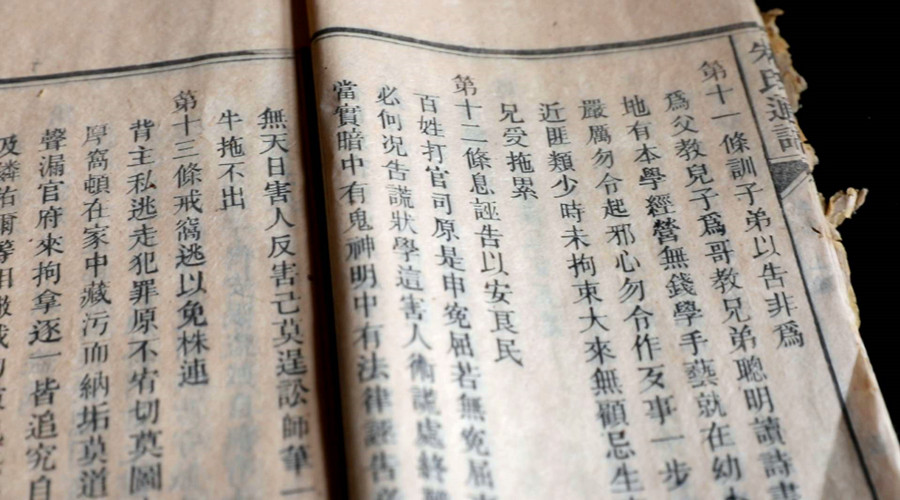 氏通
第十一條訓子弟以告非爲
爲父教兒子爲哥教兄弟聰明讀詩書
地有本學經營無錢學手藝就在幼
嚴厲勿令起邪心勿令作歹事一步
近匪類少時未拘束大來無顧忌生
兄受拖累
第十二條息誣告以安良民
百姓打官司原是申寃屈若無寃屈
必何况告謊狀學這害人術謊處終
當實暗中有鬼神明中有法律誣告
無天日害人反害己莫逞訟師筆一
牛拖不出
第十三條戒窩逃以免株連
背主私逃走犯罪原不宥切莫圖
厚窩頓在家中藏污而納垢莫道
聲漏官府來拘拿逐一皆追究自
及鄰佑爾等相